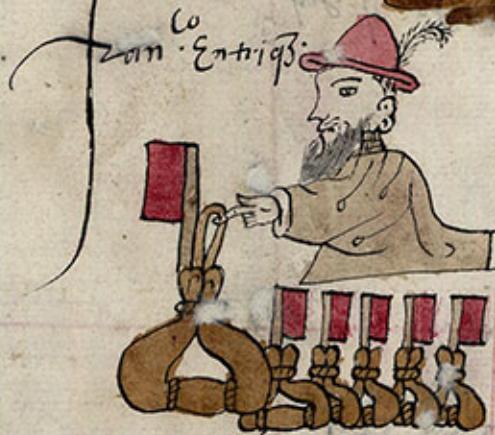 fran^co Entriqz.